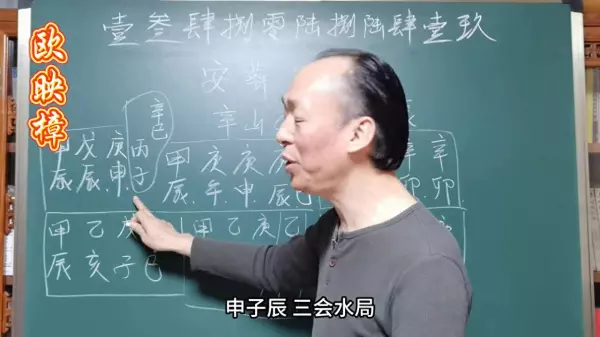 壹叁肆捌零陆捌陆肆壹玖
欧映樟
安葬
辛山
辛巳
甲戊庚丙
辰辰.申.子
甲庚庚
辰.午.申.辰巳
辛辛
卯.卯
甲乙
辰亥子巳
甲乙庚乙
申子辰 三会水局